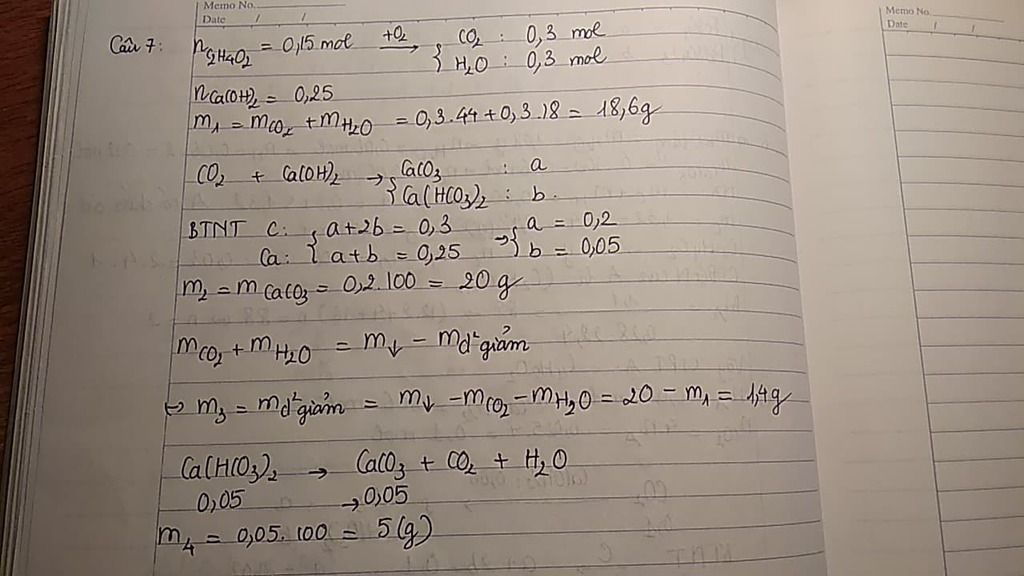 Memo No.
Date / /
Câu 7: nC2H4O2 = 0,15 mol +O2 → { CO2 : 0,3 mol
H2O : 0,3 mol
nCa(OH)2 = 0,25
m1 = mCO2 + mH2O = 0,3.44 + 0,3.18 = 18,6g
CO2 + Ca(OH)2 → { CaCO3 : a
Ca(HCO3)2 : b.
BTNT C: { a+2b = 0,3 → { a = 0,2
Ca: { a+b = 0,25 { b = 0,05
m2 = mCaCO3 = 0,2.100 = 20 g
mCO2 + mH2O = m↓ - md² giảm
↔ m3 = md² giảm = m↓ - mCO2 - mH2O = 20 - m1 = 1,4g
Ca(HCO3)2 → CaCO3 + CO2 + H2O
0,05 → 0,05
m4 = 0,05.100 = 5(g)
Memo No.
Date / /